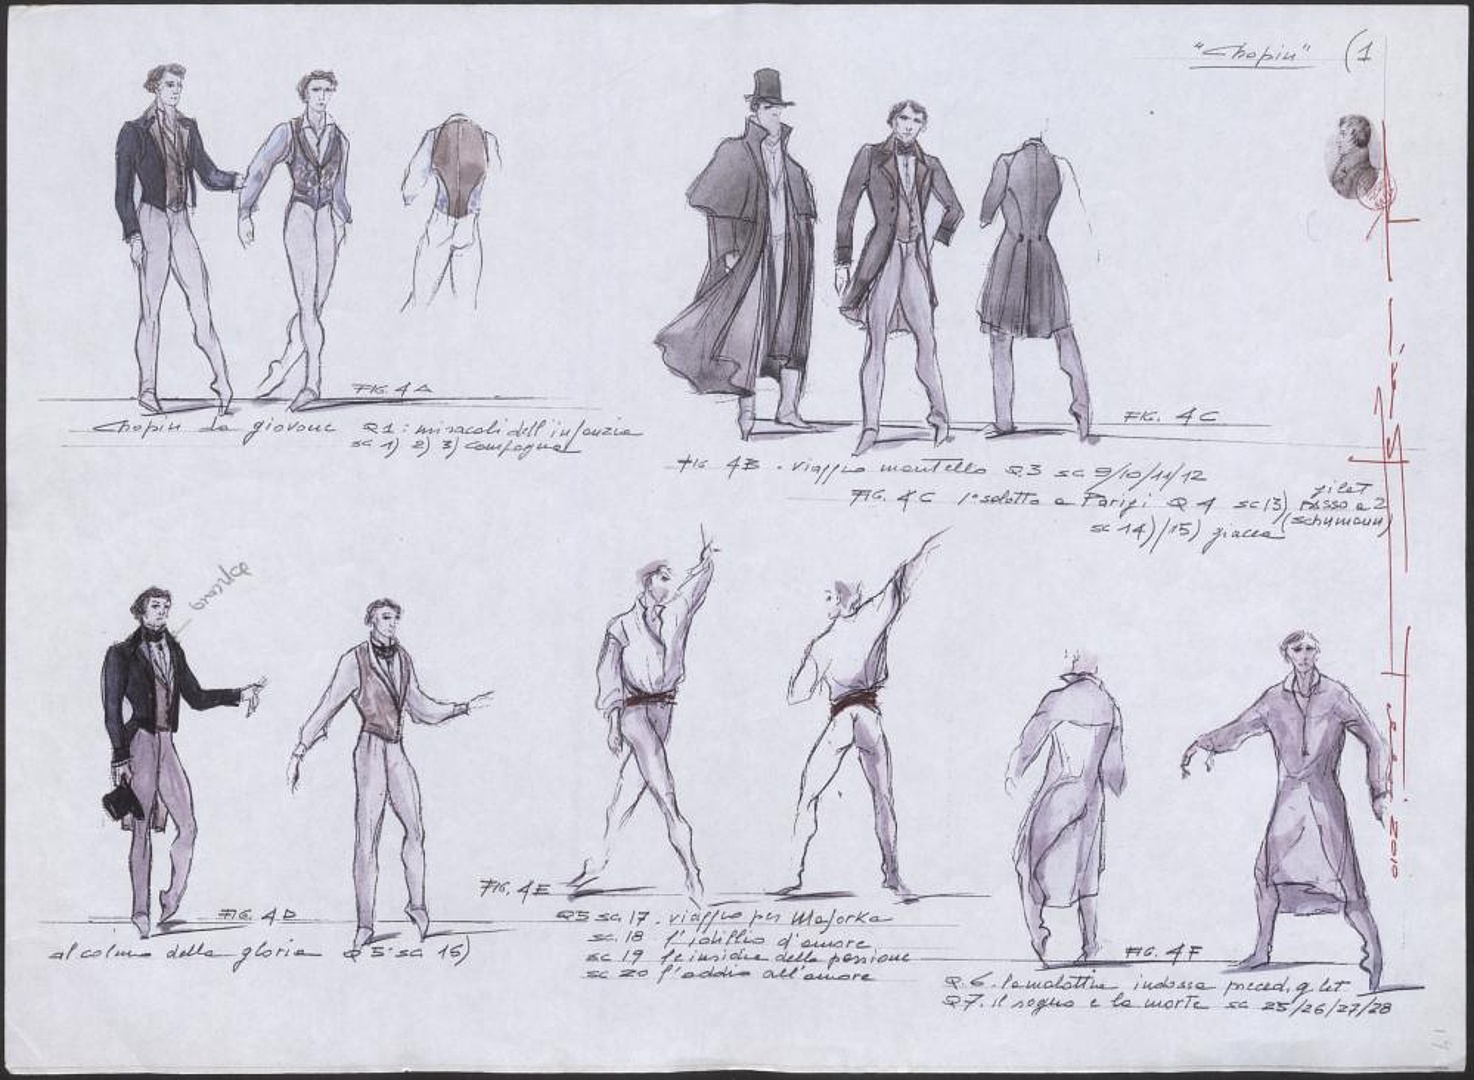 "Chopin" (1
FIG. 4A
Chopin da giovane Q1: miracoli dell'infanzia
sc 1) 2) 3) campagna
FIG. 4C
FIG 4B - viaggio mantello Q.3 sc 9/10/11/12
FIG. 4C 1° salotto a Parigi Q 4 sc 13) gilet rosso e 2
sc 14)/15) giacca (Schumann)
FIG. 4D
al colmo della gloria Q 5 sc 16)
FIG. 4E
Q5 sc. 17. viaggio per Majorka
sc. 18 l'idillio d'amore
sc. 19 le insidie della passione
sc 20 l'addio all'amore
FIG. 4F
Q. 6. la malattia indossa preced. gilet
Q 7. il sogno e la morte sc 25/26/27/28
2010